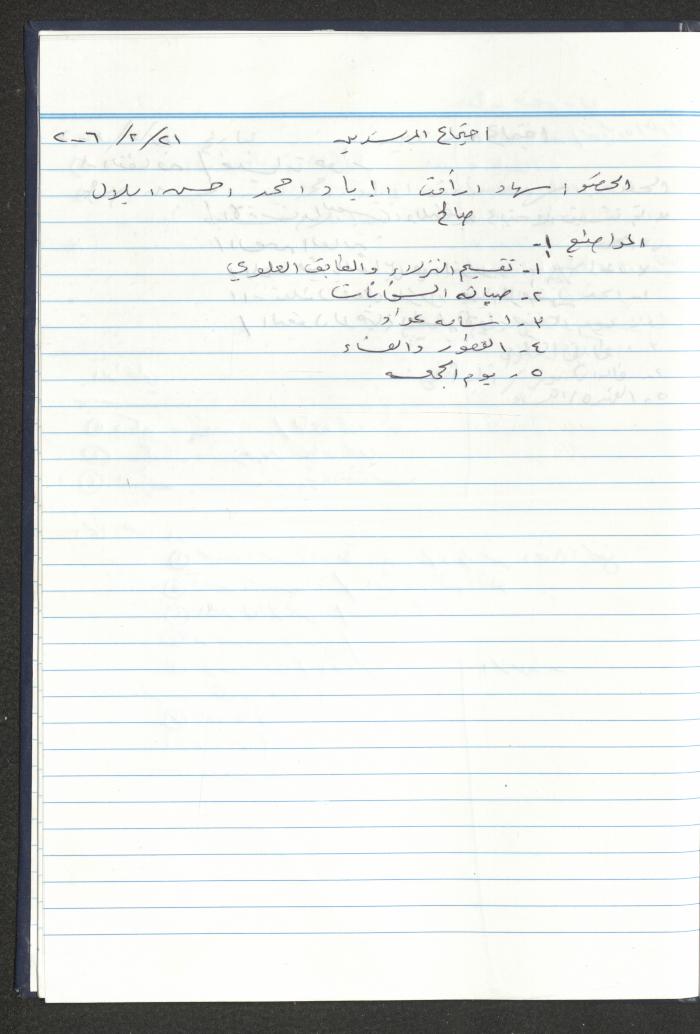 اجتماع المرشدين ٢١/٢/٢٠٠٦
الحضور / سهاد / رأفت / اياد / محمد / حسن / بلال
صالح
المواضيع :-
١- تقسيم النزلاء والطابق العلوي
٢- صيانة السخانات
٣- انسامه عواد
٤- الفطور والعشاء
٥- يوم الجمعه